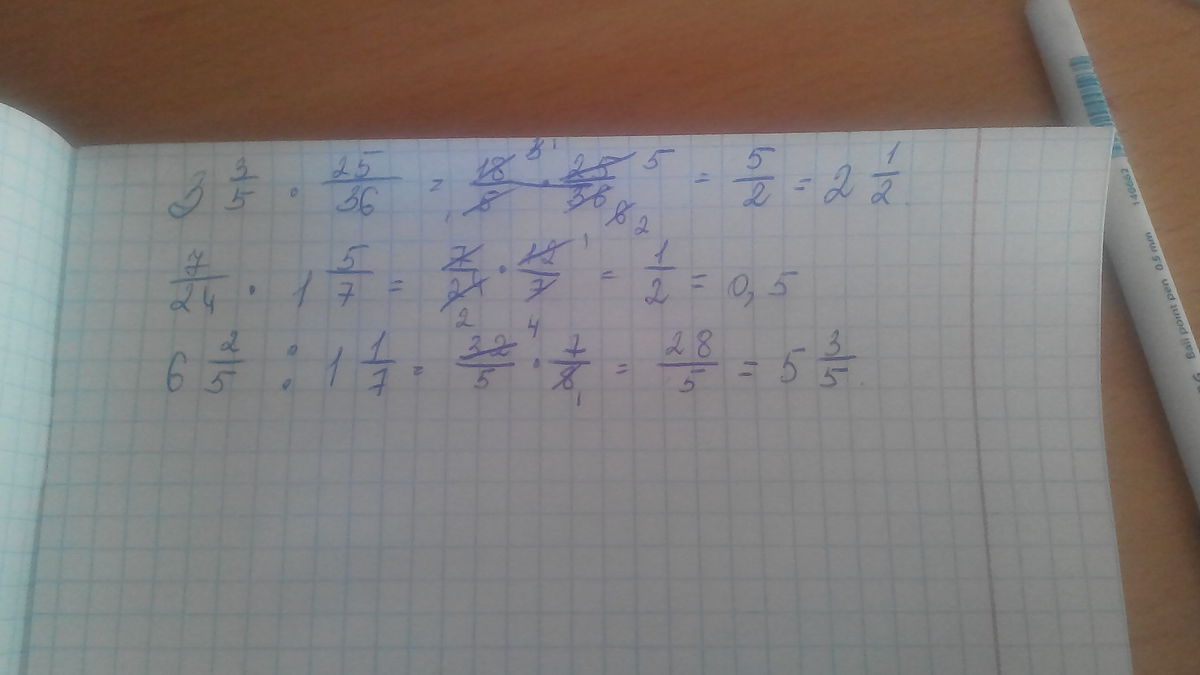 3 3/5 · 25/36 = 18/5 · 25/36 = 5/2 = 2 1/2.
7/24 · 1 5/7 = 7/24 · 12/7 = 1/2 = 0,5
6 2/5 : 1 1/7 = 32/5 · 7/8 = 28/5 = 5 3/5.
Ball point pen 0.5 mm